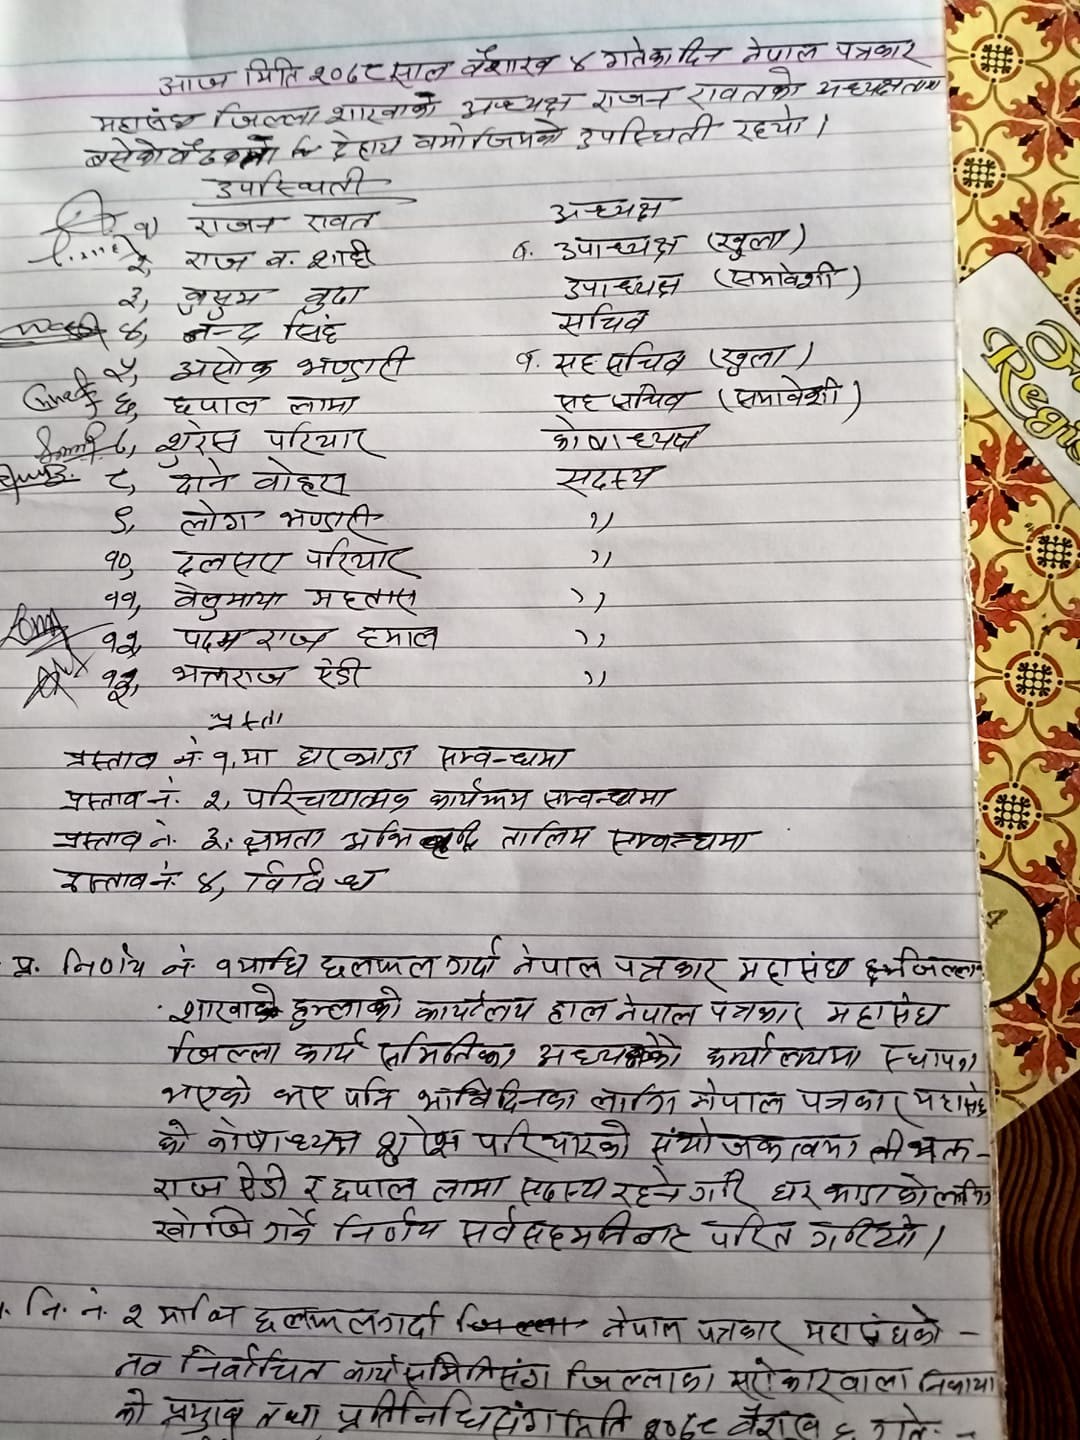 आज मिति २०७८ साल वैशाख ४ गतेका दिन नेपाल पत्रकार
महासंघ जिल्ला शाखाको अध्यक्ष राजन रावतको अध्यक्षतामा
बसेको बैठकमा देहाय बमोजिमको उपस्थिती रहयो।
उपस्थिती
१) राजन रावत अध्यक्ष
२, राज ब. शाही ब. उपाध्यक्ष (खुला)
३, कुसुम बुढा उपाध्यक्ष (समावेशी)
४, नन्द सिंह सचिव
५, असोक भण्डारी ब. सह सचिव (खुला)
६, छपाल लामा सह सचिव (समावेशी)
७, शुरेस परियार कोषाध्यक्ष
८, दाने बोहरा सदस्य
९, लोग भण्डारी ,,
१०, दलसए परियार ,,
११, वेलुमाया महतारा ,,
१२, पदम राज हमाल ,,
१३, भक्तराज ऐडी ,,
प्रस्ता
प्रस्ताव नं. १, मा घरभाडा सम्बन्धमा
प्रस्ताव नं. २, परिचयात्मक कार्यक्रम सम्बन्धमा
प्रस्ताव नं. ३, क्षमता अभिबृद्दि तालिम सम्बन्धमा
प्रस्ताव नं. ४, विविध
प्र. निर्णय नं. १ माथि छलफल गर्दा नेपाल पत्रकार महासंघ जिल्ला
शाखा हुम्लाको कार्यालय हाल नेपाल पत्रकार महासंघ
जिल्ला कार्य समितिका अध्यक्षको कार्यालयमा स्थापना
भएको भए पनि भाविदिनका लागि नेपाल पत्रकार महासंघ
को कोषाध्यक्ष शुरेस परियारको संयोजकत्वमा भक्त-
राज ऐडी र छपाल लामा सदस्य रहने गरि घर भाडाको लागि
खोजि गर्ने निर्णय सर्वसहमतिबाट पारित गरियो।
नि. नं. २ माथि छलफल गर्दा जिल्ला नेपाल पत्रकार महासंघको -
नव निर्वाचित कार्यसमितिसंग जिल्लाका सरोकारवाला निकाय
को प्रमुख तथा प्रतिनिधिसंग मिति २०७८ वैशाख ६ गते